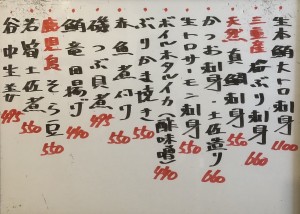 生本鮪大トロ刺身 1100
三重産 岩ぶり刺身 660
天然 真鯛刺身 550
かつお刺身・土佐造り 660
トロサーモン刺身 550
ボイルホタルイカ(酢味噌) 440
ぶりかま焼き 550
春魚煮付 550
磯つぶ貝煮 440
鮪竜田揚げ 440
鹿児島 そら豆 550
若筍土佐煮 550
谷中生姜 495